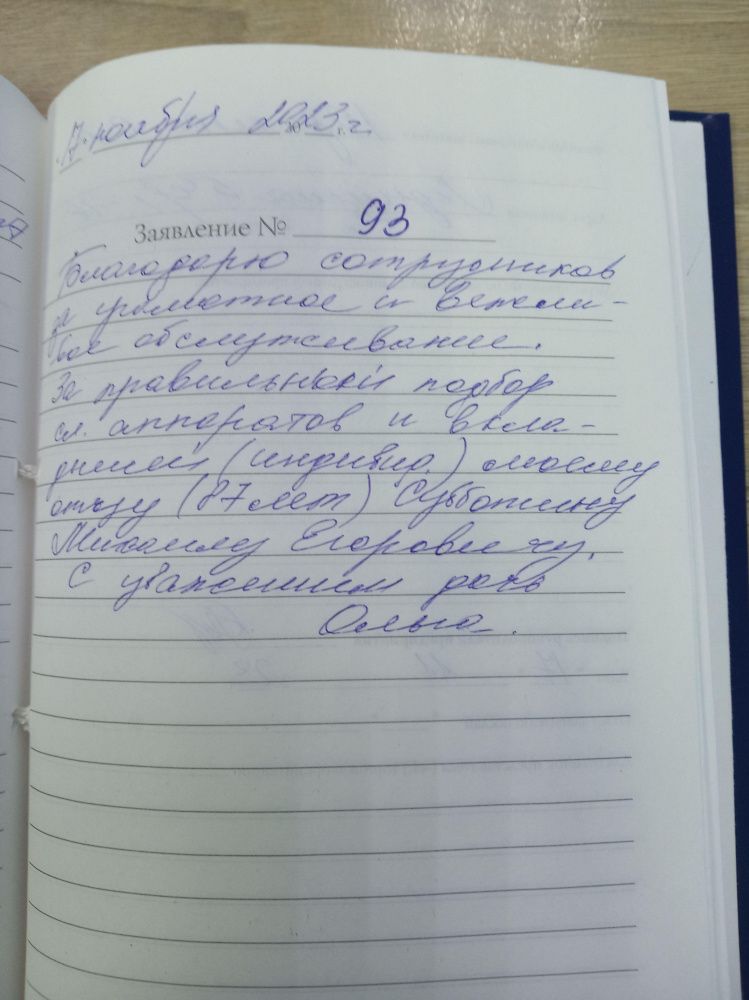 17 ноября 2023 г.
Заявление № 93
Благодарю сотрудников
за грамотное и вежли-
вое обслуживание.
За правильный подбор
сл. аппаратов и вкла-
дышей (индивид.) моему
отцу (87 лет) Субботину
Михаилу Егоровичу.
С уважением дочь
Ольга.